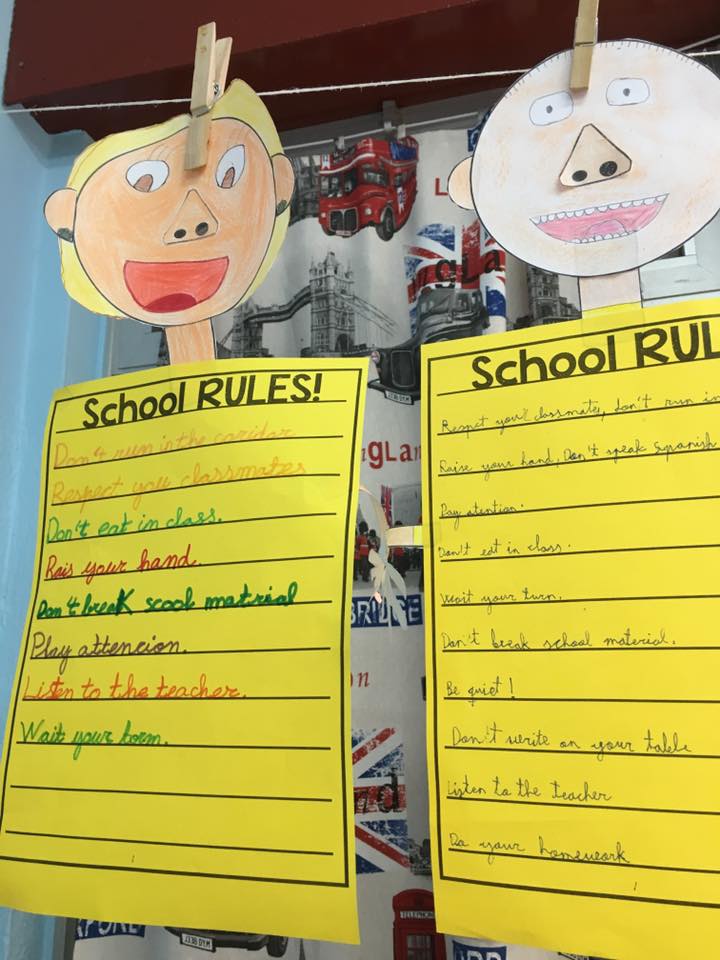 School RULES!
Don't run in the coridor
Respect you classmates
Don't eat in class.
Rais your hand.
Don't break scool matirial
Play attencion.
Listen to the teacher.
Wait your torm.
School RUL
Respect your classmates, don't run in
Raise your hand, Don't speak Spanish
Pay atention.
Don't eat in class.
Wait your turn.
Don't break school material.
Be quiet!
Don't write on your table
Listen to the teacher
Do your homework
L
ngLa
gLan
BRIDGE
n
nd
J338 DYM
TELEPHONE